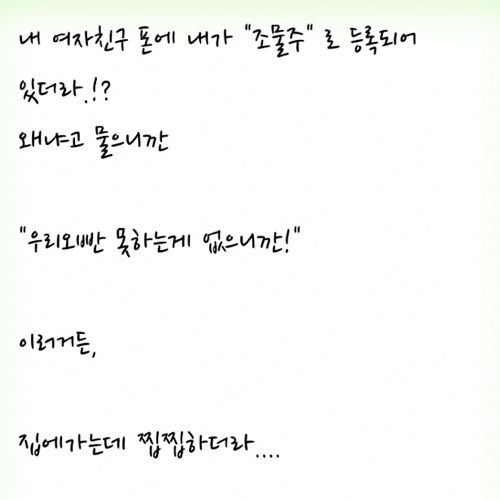 내 여자친구 폰에 내가 "조물주" 로 등록되어
있더라.!?
왜냐고 물으니깐
"우리오빤 못하는게 없으니깐!"
이러거든,
집에가는데 찝찝하더라....